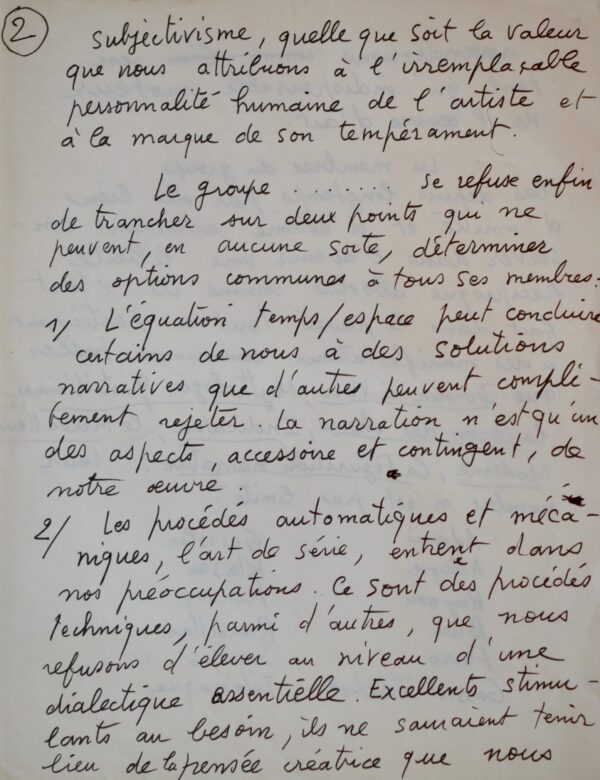 2
subjectivisme, quelle que soit la valeur
que nous attribuons à l'irremplaçable
personnalité humaine de l'artiste et
à la marque de son tempérament.
Le groupe ........ se refuse enfin
de trancher sur deux points qui ne
peuvent, en aucune sorte, déterminer
des options communes à tous ses membres:
1/ L'équation temps/espace peut conduire
certains de nous à des solutions
narratives que d'autres peuvent complè-
tement rejeter. La narration n'est qu'un
des aspects, accessoire et contingent, de
notre œuvre.
2/ Les procédés automatiques et méca-
niques, l'art de série, entrent dans
nos préoccupations. Ce sont des procédés
techniques, parmi d'autres, que nous
refusons d'élever au niveau d'une
dialectique essentielle. Excellents stimu-
lants au besoin, ils ne sauraient tenir
lieu de la pensée créatrice que nous